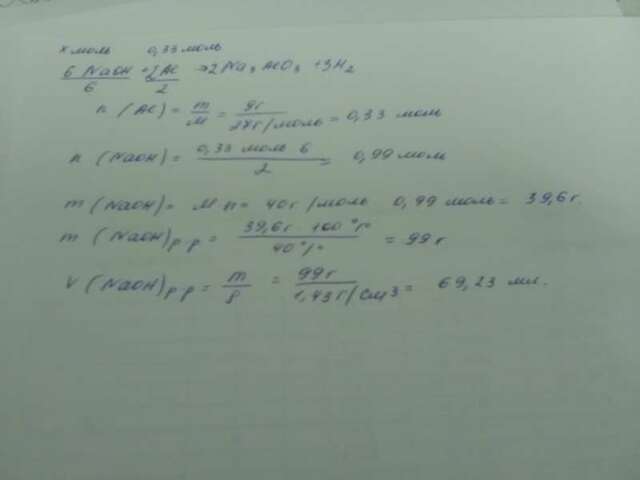 х моль 0,33 моль
6 NaOH + 2Al → 2Na3AlO3 + 3H2
6 2
n (Al) = m/M = 9г/27г/моль = 0,33 моль
n (NaOH) = 0,33 моль 6/2 = 0,99 моль
m (NaOH) = M n = 40г/моль 0,99 моль = 39,6г.
m (NaOH)р-р = 39,6г · 100%/40% = 99г
V (NaOH)р-р = m/ρ = 99г/1,43г/см3 = 69,23 мл.